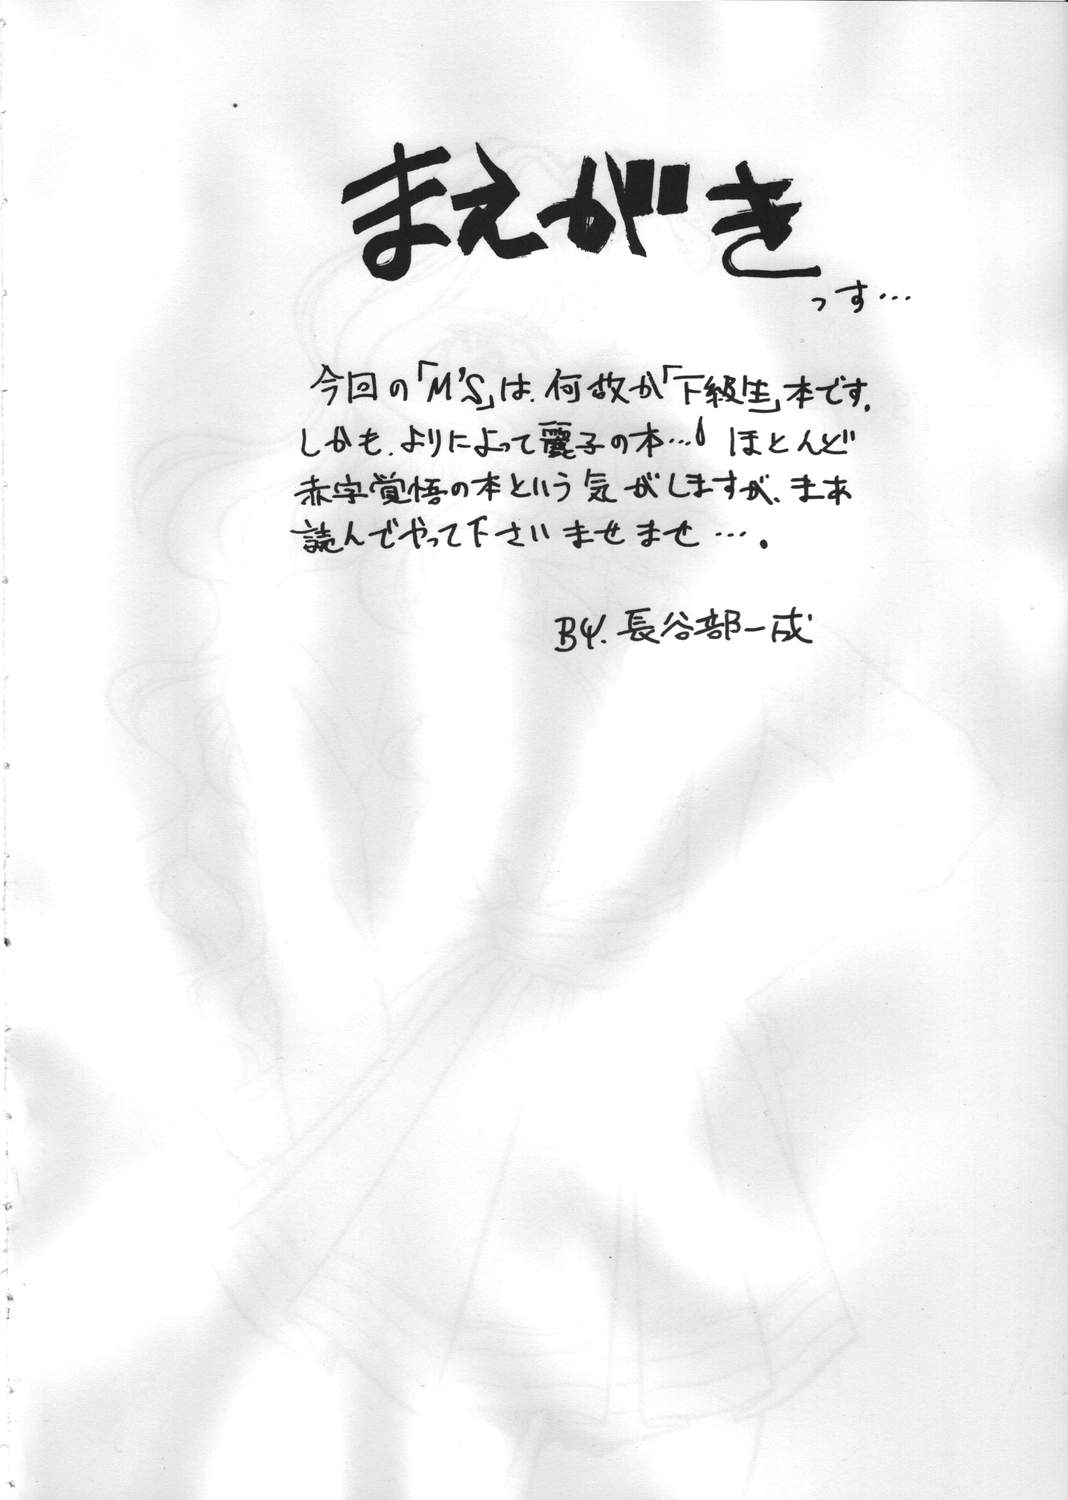 まえがき
っす…
今回の「M'S」は、何故か「下級生」本です。
しかも、よりによって麗子の本…! ほとんど
赤字覚悟の本という気がしますが、まあ
読んでやって下さいませませ…。
BY. 長谷部一成